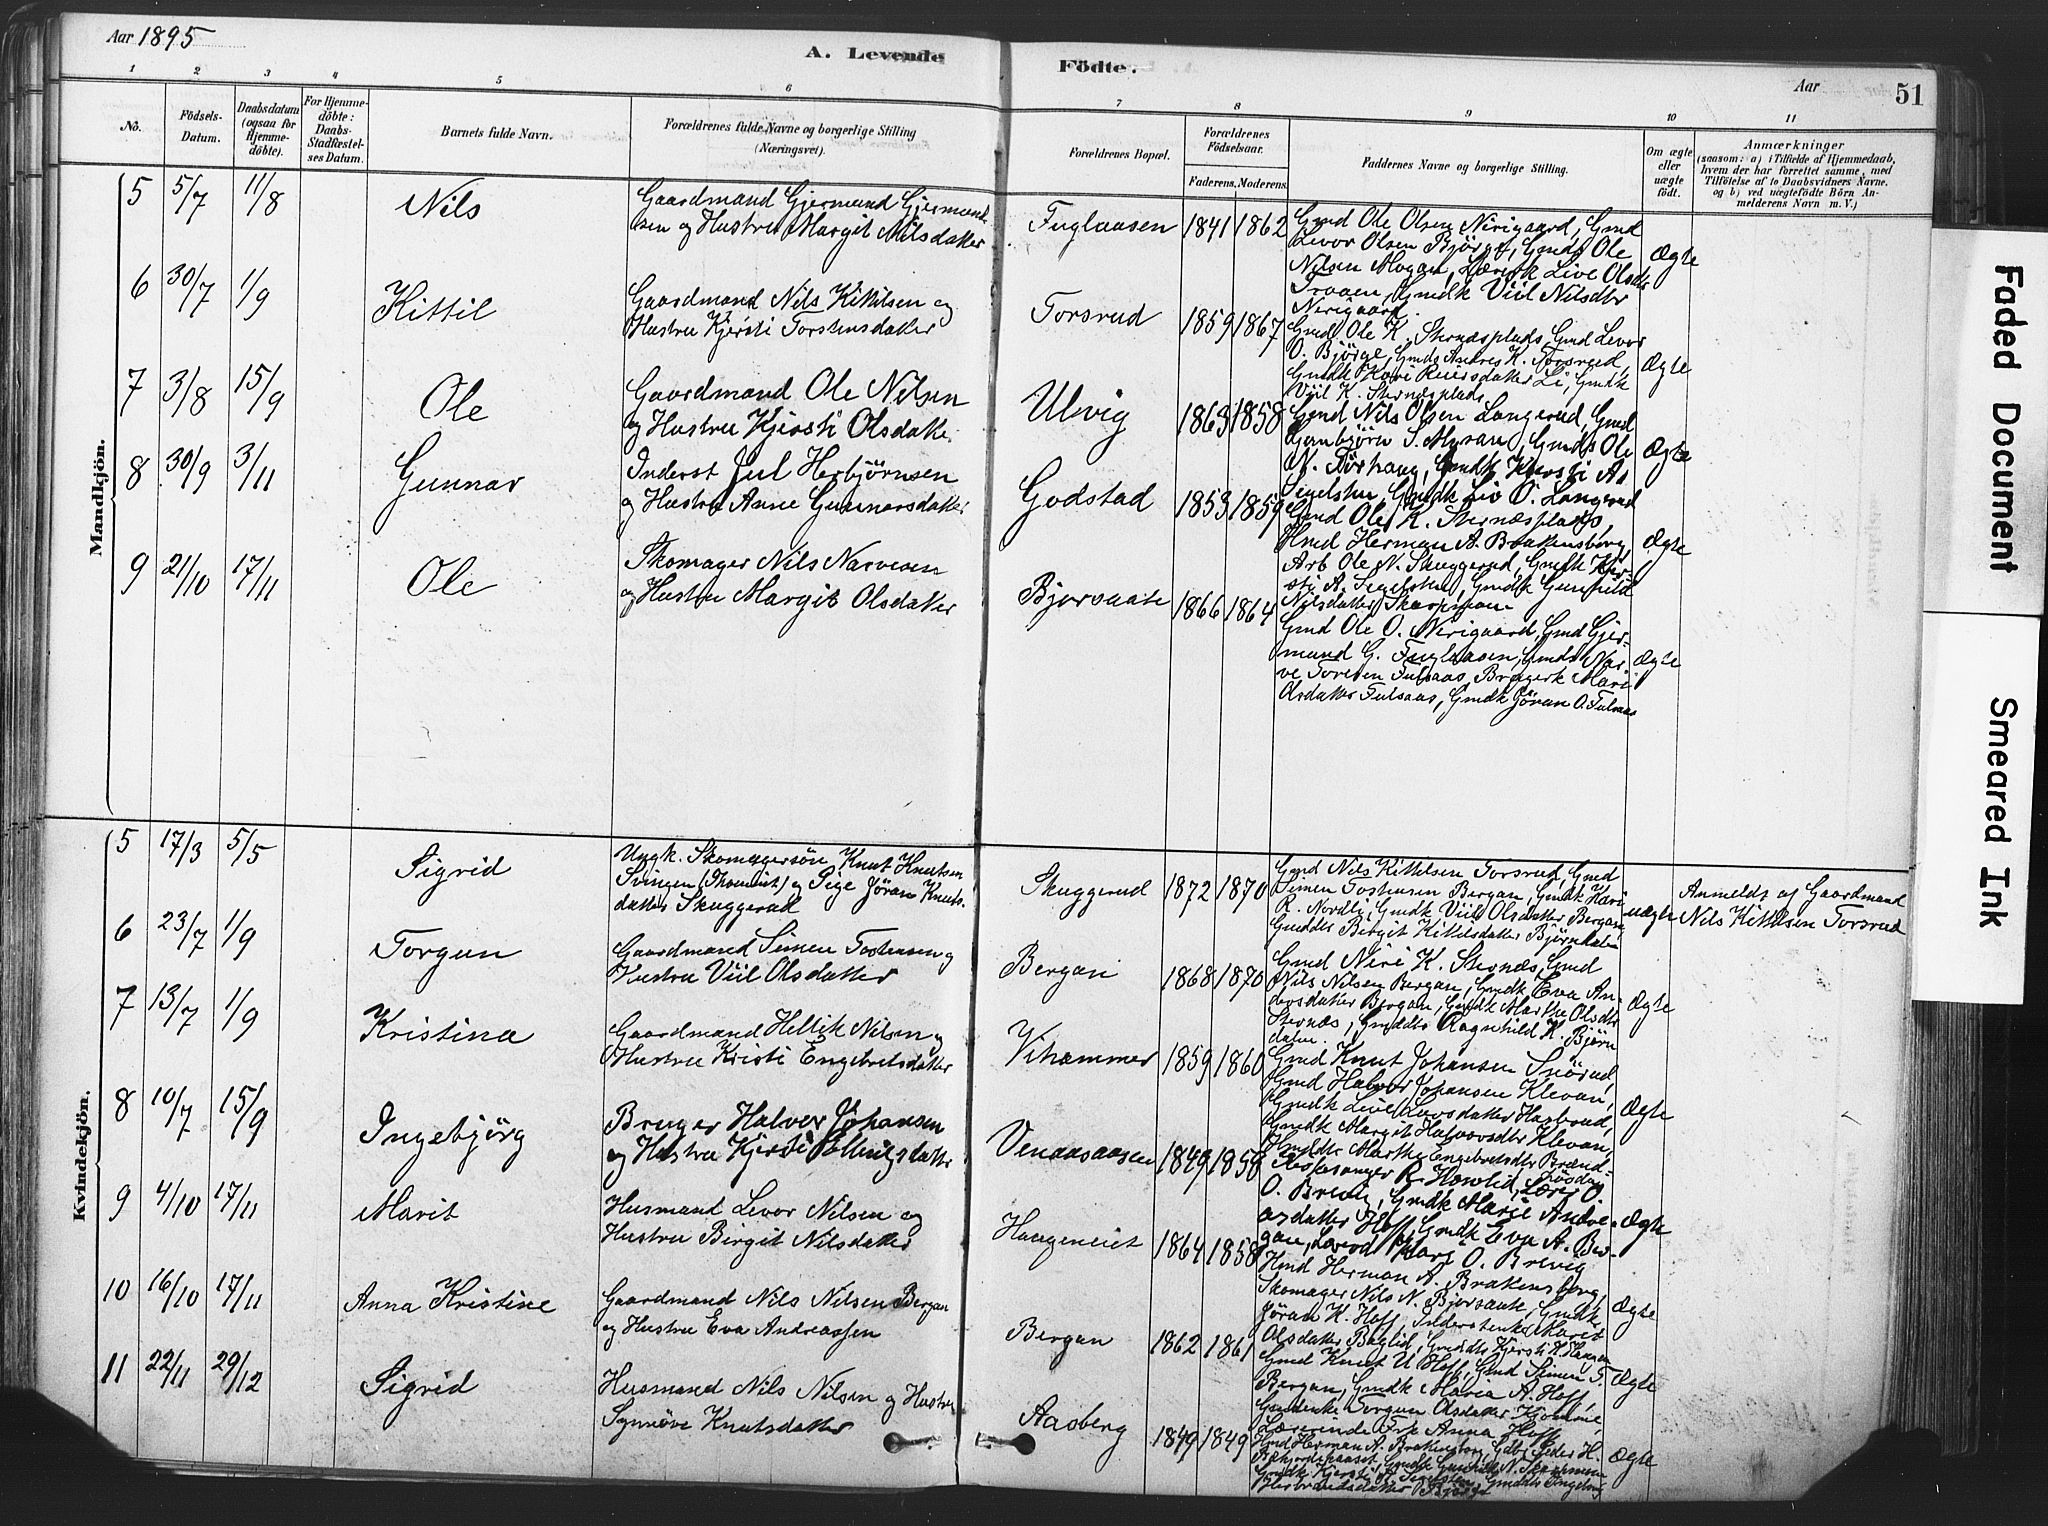 Aar 1895
A. Levende Födte.
Aar 51
1 2 3 4 5 6 7 8 9 10 11
No.
Födsels-
Datum.
Daabsdatum
(ogsaa for
Hjemme-
döbte).
For Hjemme-
döbte:
Daabs-
Stadfæstel-
ses Datum.
Barnets fulde Navn.
Forældrenes fulde Navne og borgerlige Stilling
(Næringsvei).
Forældrenes Bopæl.
Forældrenes
Födselsaar.
Faderens. Moderens.
Faddernes Navne og borgerlige Stilling.
Om ægte
eller
uægte
födt.
Anmærkninger
(saasom: a) i Tilfælde af Hjemmedaab,
hvem der har forrettet samme, med
Tilföielse af to Daabsvidners Navne.
og b) ved uægtefödte Börn An-
melderens Navn m. V.)
Mandkjön.
5 5/7 11/8 Nils
Gaardmand Gjermund Gjermund-
sen og Hustru Margit Nilsdatter
Fuglaasen 1841 1862
Gmd Ole Olsen Nerigaard, Gmd
Levor Olsen Bjørge, Gmds Ole
Nilsen Mogan, Lærerk Live Olsdtr
Traaen, Gmdk Viil Nilsdtr
Nerigaard.
Ægte
6 30/7 1/9 Kittil
Gaardmand Nils Kittilsen og
Hustru Kjersti Torstensdatter
Torsrud 1859 1867
Gmd Ole K. Sternæsplads, Gmd Levor
O. Bjørge, Gmds Andres K. Torsrud,
Gmdk Kari Reiersdatter Li, Gmdk
Viil K. Sternæsplads
Ægte
7 3/8 15/9 Ole
Gaardmand Ole Nilsen
og Hustru Kjersti Olsdatter
Ulvig 1863 1858
Gmd Nils Olsen Langerud, Gmd
S. Moran, Gmds Ole
N. Gmdk Kjersti A.
Gmdk Liv O. Langerud
Ægte
8 30/9 3/11 Gunnar
Inderst Jul Herbjörnsen
og Hustru Anne Gunnarsdatter
Godstad 1853 1859
Gmd Ole K. Sternæsplads,
Hmd Herman A. Brakensborg,
Arb Ole N. Skuggerud, Gmdk Kjer-
sti A. Gmdk Gunhild
Nilsdatter
Ægte
9 21/10 17/11 Ole
Skomager Nils Narvesen
og Hustru Margit Olsdatter
Bjorsaate 1866 1864
Gmd Ole O. Nerigaard, Gmd Gjer-
mund G. Fuglaasen, Gmds Nar-
ve Toresen Tulsaas, Brugerk Mari
Olsdatter Tulsaas, Gmdk Jöran O. Tulsaas
Ægte
Kvindekjön.
5 17/3 5/5 Sigrid
Ungk. Skomagersön Knut Knutsen
Svingen og Pige Jöran Knuts-
datter Skuggerud
Skuggerud 1872 1870
Gmd Nils Kittelsen Torsrud, Gmd
Simen Tostensen Bergan, Gmdk Kari
R. Nordby, Gmdk Viil Olsdatter Bergan,
Gmddtr Birgit Kittelsdatter Björndalen
uægte
Anmeldt af Gaardmand
Nils Kittelsen Torsrud
6 23/7 1/9 Torgun
Gaardmand Simen Tostensen og
Hustru Viil Olsdatter
Bergan 1868 1870
Gmd Neri K. Sternæs, Gmd
Nils Nilsen Bergan, Gmdk Eva An-
dersdatter Bergan, Gmdk Marthe Olsdtr
Sternæs, Gmddtr Ragnhild K. Björn
dalen.
Ægte
7 13/7 1/9 Kristina
Gaardmand Hellik Nilsen og
Hustru Kristi Engebretsdatter
Vihammer 1859 1860
Gmd Knut Johansen
Gmd Halvor Johansen Klevan,
Gmdk Live Larsdatter Hasbrud,
Gmdk Margit Halvorsdtr Klevan,
Gmddtr Marthe Engebretsdtr
Ægte
8 10/7 15/9 Ingebjörg
Bruger Halvor Johansen
og Hustru Kjersti
Venaasaasen 1849 1858
Kirkesanger R. Lærer O.
O. Brevig, Gmdk Marie Andre-
asdatter Hoff, Gmdk Eva A. Ber-
gan, O. Brevig
Ægte
9 4/10 17/11 Marit
Husmand Levor Nilsen og
Hustru Birgit Nilsdatter
Haugeneiet 1864 1858
Hmd Herman A. Brakensborg,
Skomager Nils N. Bjorsaate, Gmdk
Jöran K. Hoff, Inderstenke Marit
Olsdatter Baglid, Gmddtr Kjersti H. Haugen
Ægte
10 16/10 17/11 Anna Kristine
Gaardmand Nils Nilsen Bergan
og Hustru Eva Andreassen
Bergan 1862 1861
Gmd Knut U. Hoff, Gmd Simen T.
Bergan, Gmdk Maria A. Hoff,
Gmdenke Torgun Olsdatter
Lærerinde Frk Anna Hoff
Ægte
11 22/11 29/12 Sigrid
Husmand Nils Nilsen og Hustru
Synnöve Knutsdatter
Aasberg 1849 1849
Hmd Herman A. Brakensborg, Peder H.
Gmdk Gunhild N.
Gmdk Kjersti A. Gmddtr Ingeborg
Herbrandsdatter Bjørge
Ægte
Faded Document
Smeared Ink